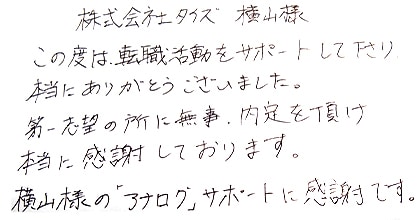 株式会社タイズ 横山様
この度は、転職活動をサポートして下さり
本当にありがとうございました。
第一志望の所に無事、内定を頂け
本当に感謝しております。
横山様の「アナログ」サポートに感謝です。